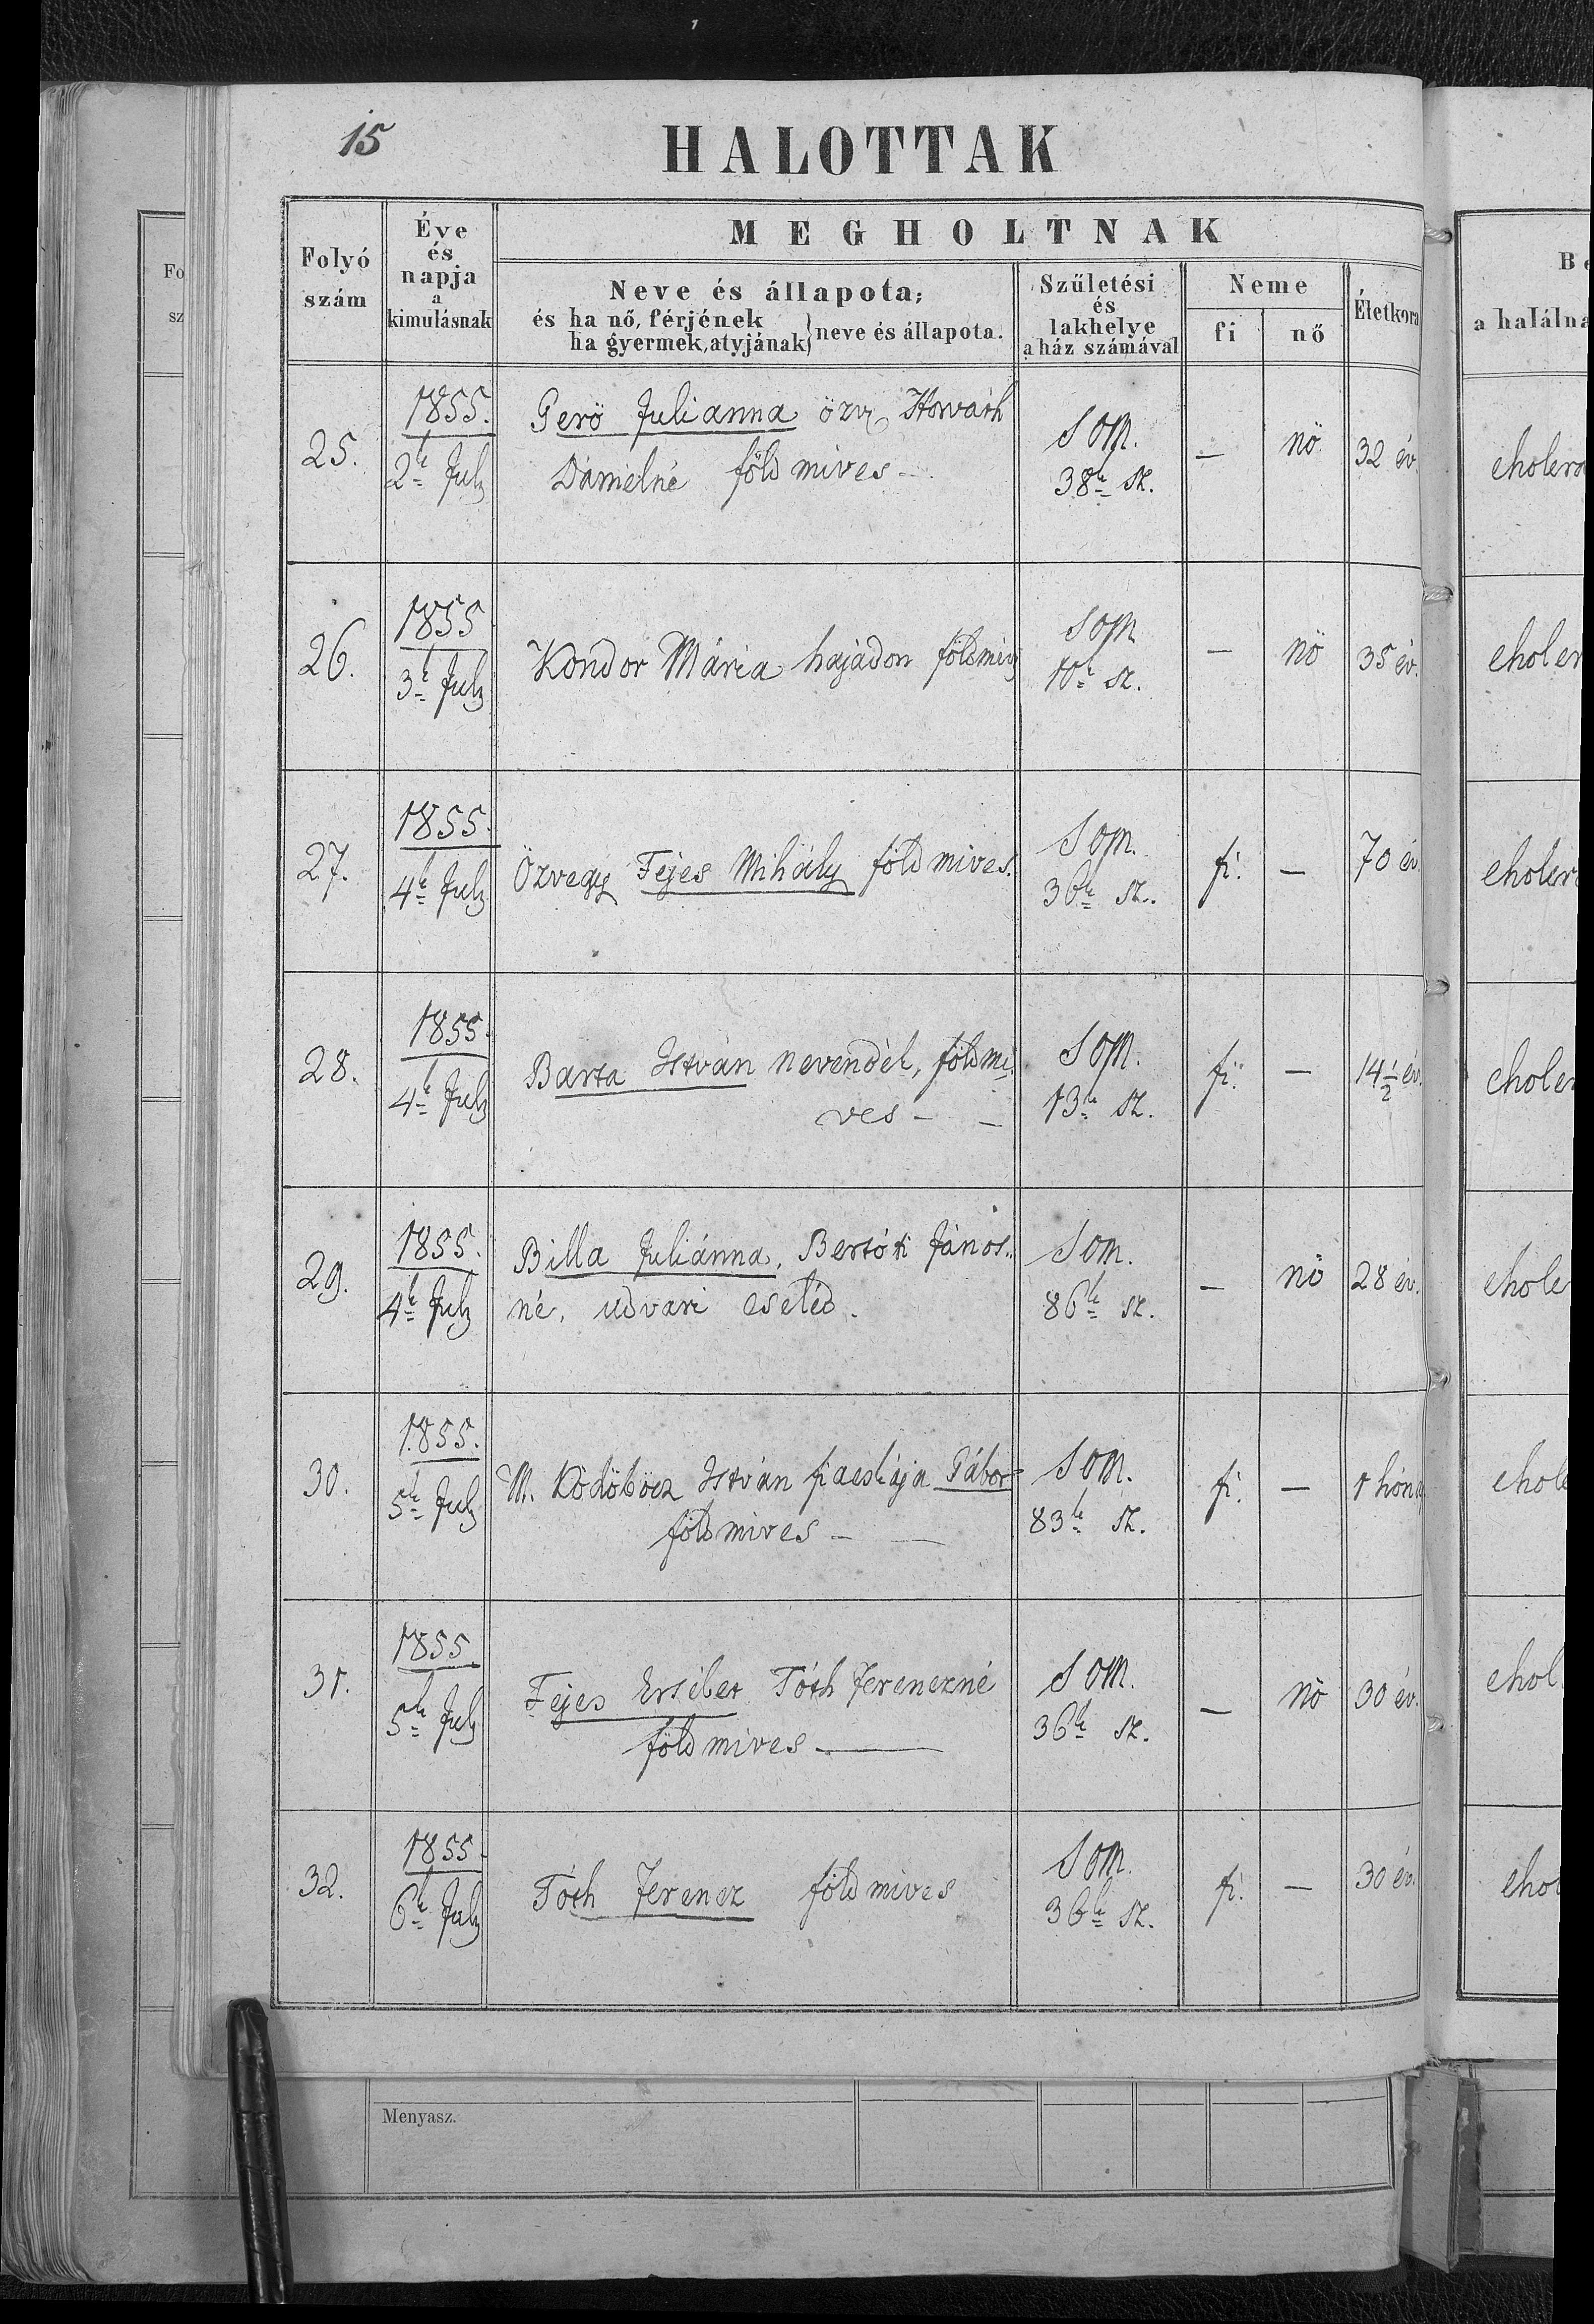 15
HALOTTAK
MEGHOLTNAK
Folyó
szám
Éve
és
napja
a
kimulásnak
Neve és állapota;
és ha nő, férjének
ha gyermek, atyjának} neve és állapota.
Születési
és
lakhelye
a ház számával
Neme
fi
nő
Életkora
25.
1855.
2k July
Gerö Julianna özv Horváth
Dánielné földmives –
Som.
38k sz.
–
nö
32 év.
cholera
26.
1855
3k July
Kondor Mária hajadon földmiv
Som
10k sz.
–
nö
35 év.
choler
27.
1855.
4k July
Özvegy Fejes Mihály földmives.
Som.
36k sz.
fi.
–
70 év
cholera
28.
1855.
4k July
Barta István nevendék, földmi
ves – –
Som.
13k sz.
fi.
–
14 1/2 év.
choler
29.
1855.
4k July
Billa Juliánna. Bertók János
né, udvari cseléd.
Som.
86k sz.
–
nö
28 év.
chole
30.
1855.
5k July
M. Ködöböcz István fiacskája Gábor
földmives – –
Som.
83k sz.
fi.
–
1 hóna
chole
31.
1855.
5k July
Fejes Ersébet Tóth Ferenczné
földmives –
Som.
36k sz.
–
nö
30 év.
chol
32.
1855.
6k July
Tóth Ferencz földmives
Som.
36k sz.
fi.
–
30 év.
cho
Be
a halálna
Fo
sz
Menyasz.